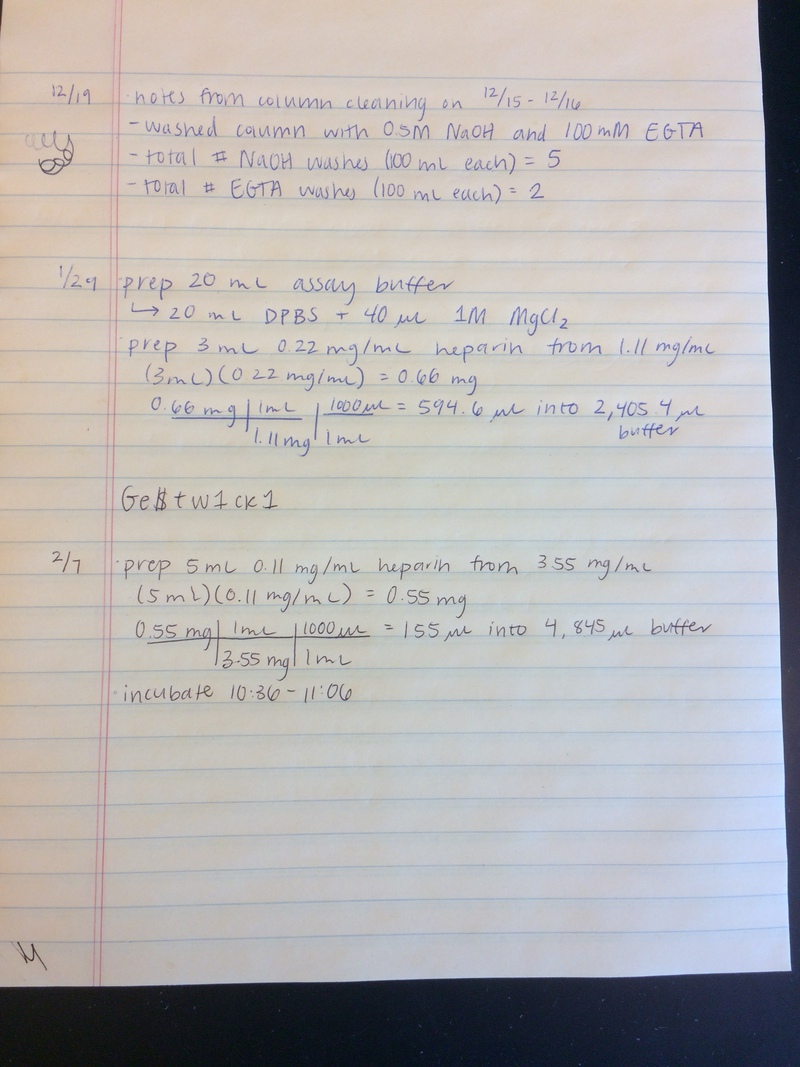 12/19 · notes from column cleaning on 12/15 - 12/16
- washed column with 0.5M NaOH and 100 mM EGTA
- total # NaOH washes (100 mL each) = 5
- total # EGTA washes (100 mL each) = 2
1/29 · prep 20 mL assay buffer
↳ 20 mL DPBS + 40 µL 1M MgCl₂
· prep 3 mL 0.22 mg/mL heparin from 1.11 mg/mL
(3mL)(0.22 mg/mL) = 0.66 mg
0.66 mg | 1mL | 1000 µL = 594.6 µL into 2,405.4 µL
1.11 mg | 1 mL buffer
tw1ck1
2/7 · prep 5mL 0.11 mg/mL heparin from 3.55 mg/mL
(5mL)(0.11 mg/mL) = 0.55 mg
0.55 mg | 1mL | 1000 µL = 155 µL into 4,845 µL buffer
3.55 mg | 1mL
· incubate 10:36 - 11:06